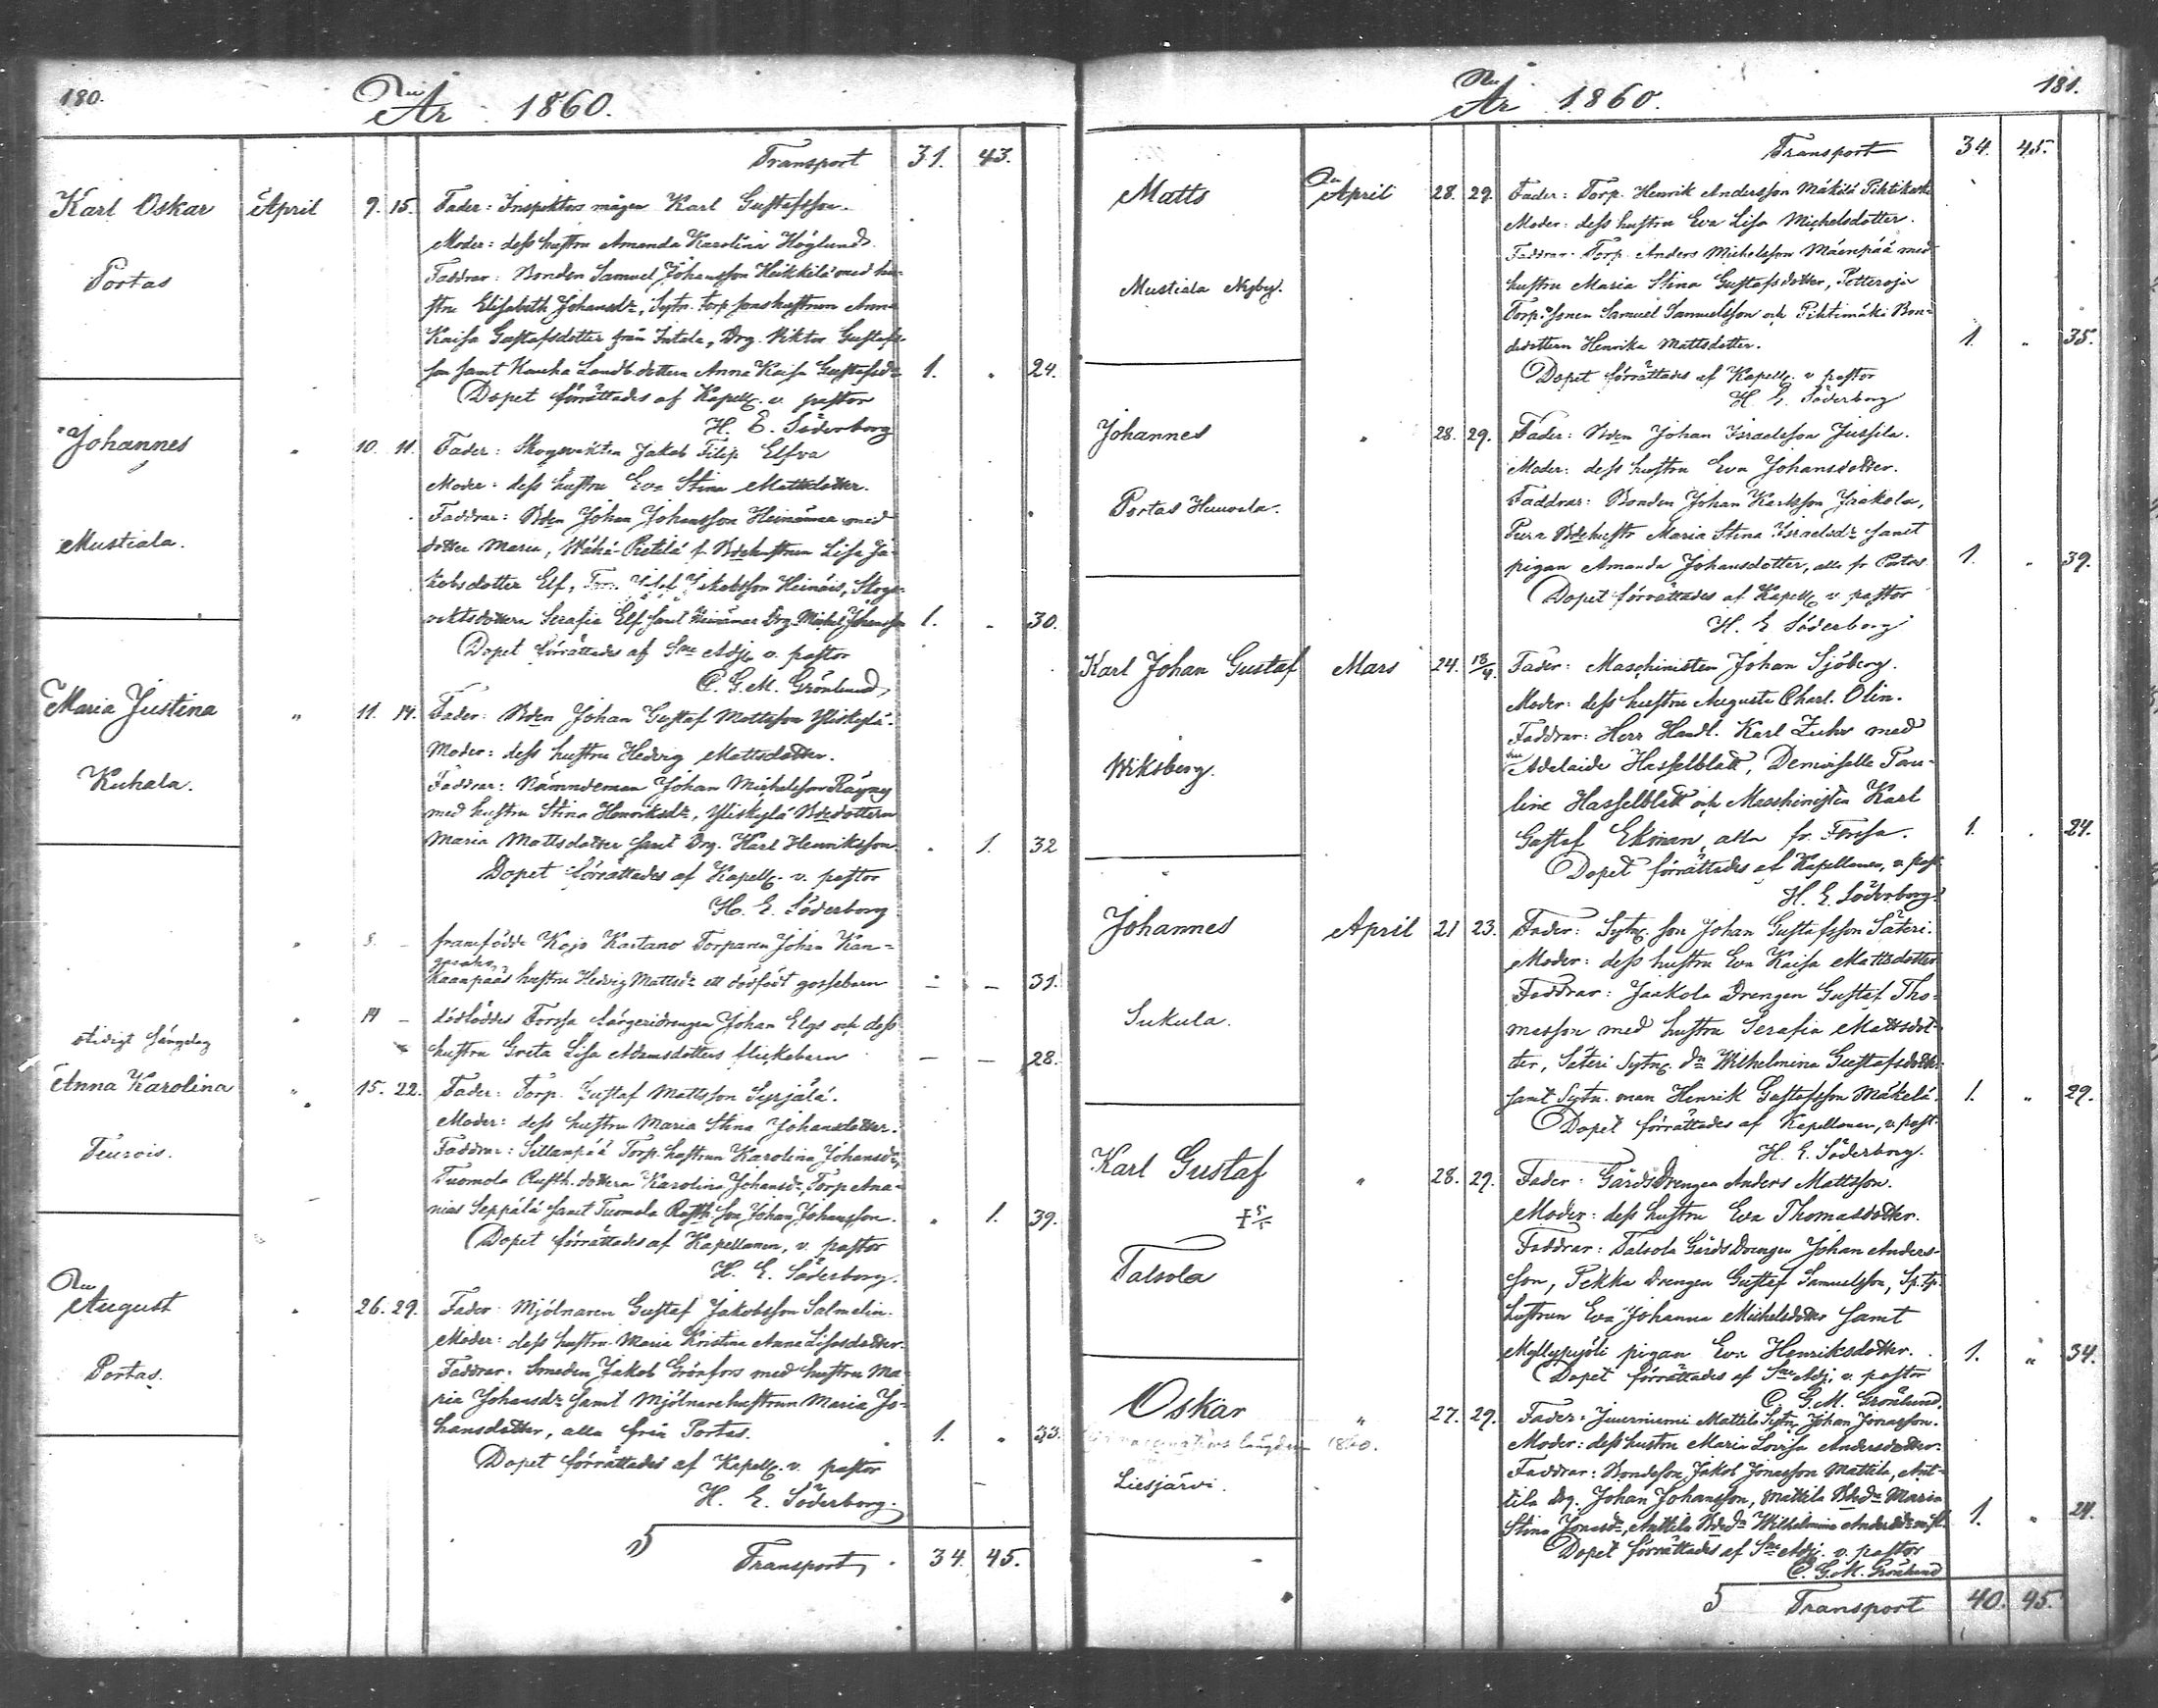 180.
År 1860.
Transport 31. 43.
Karl Oskar April 9. 15. Fader: Inspektors mågen Karl Gustafsson.
Moder: dess hustru Amanda Karolina Höglund.
Portas
Faddrar: Bonden Samuel Johansson Heikkilä med hu-
stru Elisabeth Johansdr, Sytn. torp. sonshustrun Anna
Kaisa Gustafsdotter från Intala, Drg. Viktor Gustafs-
son samt Landb. dottern Anna Kaisa Gustafsdr 1. " 24.
Dopet förrättades af Kapell. v. pastor
H. E. Söderborg
Johannes " 10. 11. Fader: Skogvakten Jakob Filip Elfva
Moder: dess hustru Eva Stina Mattsdotter.
Faddrar: Bden Johan Johansson Heinämaa med
Mustiala.
dotter Maria, Wähä-Pietilä f. Bdehustrun Lisa Ja-
kobsdotter Elf, Jakobsson Heinäis, Skog-
vaktsdottern Serafia Elf samt Drg. Michel Johansson 1. " 30.
Dopet förrättades af Sne Adj. v. pastor
C. G. M. Grönlund
Maria Justina " 11. 14. Fader: Bden Johan Gustaf Mattsson Yliskylä.
Moder: dess hustru Hedvig Mattsdotter.
Kuhala.
Faddrar: Nämndeman Johan Michelsson Räyny
med hustru Stina Henriksdr, Yliskylä Bdedottern
Maria Mattsdotter samt Drg. Karl Henriksson. " 1. 32
Dopet förrättades af Kapell. v. pastor
H. E. Söderborg
" 8. – framfödde Kojo Torparen Johan Kan-
hustru Hedvig Mattsdr ett dödfödt gossebarn – – 31.
" 14 – dödföddes Forssa färgeridrengen Johan Elgs och dess
hustru Greta Lisa Adamsdotters flickebarn – – 28.
Anna Karolina " 15. 22. Fader: Torp. Gustaf Mattsson Syrjälä.
Moder: dess hustru Maria Stina Johansdotter.
Teurois.
Faddrar: Sillanpää Torp. hustrun Karolina Johansdr,
Tuomola Rusth. dottern Karolina Johansdr, Torp. Ana-
nias Seppälä samt Tuomola Rusth. son Johan Johansson. " 1. 39.
Dopet förrättades af Kapellanen, v. pastor
H. E. Söderborg.
August " 26. 29. Fader: Mjölnaren Gustaf Jakobsson Salmelin.
Moder: dess hustru Maria Kristina Anna Lisasdotter.
Portas.
Faddrar: Smeden Jakob Grönfors med hustru Ma-
ria Johansdr samt Mjölnarehustrun Maria Jo-
hansdotter, alla från Portas. 1. " 33.
Dopet förrättades af Kapell. v. pastor
H. E. Söderborg.
Transport 34. 45.
181.
År 1860.
Transport 34. 45.
Matts April 28. 29. Fader: Torp. Henrik Andersson Mäkilä
Moder: dess hustru Eva Lisa Michelsdotter.
Faddrar: Torp. Anders Michelsson Mäenpää med
Mustiala Nyby.
hustru Maria Stina Gustafsdotter, Potteroja
Torp. sonen Samuel Samuelsson och Pihtimäki Bon-
dedottern Henrika Mattsdotter. 1. " 35.
Dopet förrättades af Kapell. v. pastor
H. E. Söderborg
Johannes " 28. 29. Fader: Bden Johan Israelsson Jussila.
Moder: dess hustru Eva Johansdotter.
Portas
Faddrar: Bonden Johan Karlsson Jaakola,
Pura Bdehustr Maria Stina Israelsdr samt
pigan Amanda Johansdotter, alla fr. Portas 1. " 39.
Dopet förrättades af Kapell. v. pastor
H. E. Söderborg
Karl Johan Gustaf Mars 24. 18/4. Fader: Maschinisten Johan Sjöberg.
Moder: dess hustru Augusta Charl. Olin.
Faddrar: Herr Handl. Karl Zuhr med
Wiksberg.
Adelaide Hasselblatt, Demoiselle Pau-
line Hasselblatt och Maschinisten Karl
Gustaf Ekman, alla fr. Forssa. 1. " 24.
Dopet förrättades af Kapellanen, v. past.
H. E. Söderborg.
Johannes April 21 23. Fader: Sytng. son Johan Gustafsson Säteri.
Moder: dess hustru Eva Kaisa Mattsdotter
Sukula.
Faddrar: Jaakola Drengen Gustaf Tho-
masson med hustru Serafia Mattsdot-
ter, Säteri Sytng. dn Wilhelmina Gustafsdotter
samt Sytn. man Henrik Gustafsson Mäkelä. 1. " 29.
Dopet förrättades af Kapellanen, v. past.
H. E. Söderborg.
Karl Gustaf " 28. 29. Fader: Gårdsdrengen Anders Mattsson.
Moder: dess hustru Eva Thomasdotter.
Talsola
Faddrar: Talsola Gårdsdrengen Johan Anders-
son, Pekka drengen Gustaf Samuelsson, Sp. tp.
hustrun Eva Johanna Michelsdotter samt
Myllypyöli pigan Eva Henriksdotter. 1. " 34.
Dopet förrättades af Sne Adj. v. pastor
C. G. M. Grönlund.
Oskar " 27. 29. Fader: Juurniemi Mattila Sytng Johan Jonasson.
1860. Moder: dess hustru Maria Lovisa Andersdotter.
Liesjärvi.
Faddrar: Bondeson Jakob Jonasson Mattila, Ant-
tila drg. Johan Johansson, Mattila Bdedn Maria
Stina Jonasdr, Anttila Bdedn Wilhelmina Andersdr 1. " 24.
Dopet förrättades af Sne Adj. v. pastor
C. G. M. Grönlund
5 Transport 40. 45.